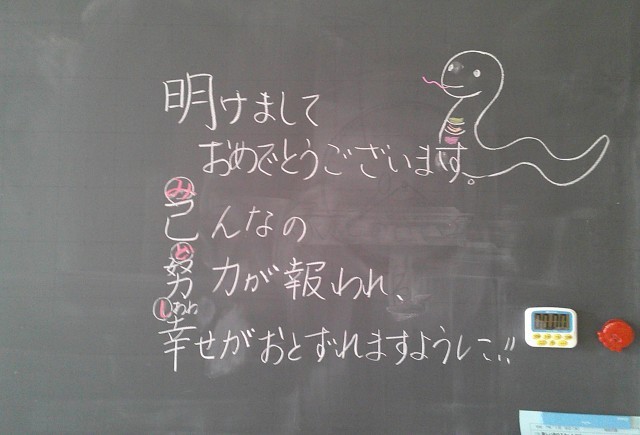 明けまして
おめでとうございます。
み
己んなの
ど
努力が報われ、
しあわ
幸せがおとずれますように!!